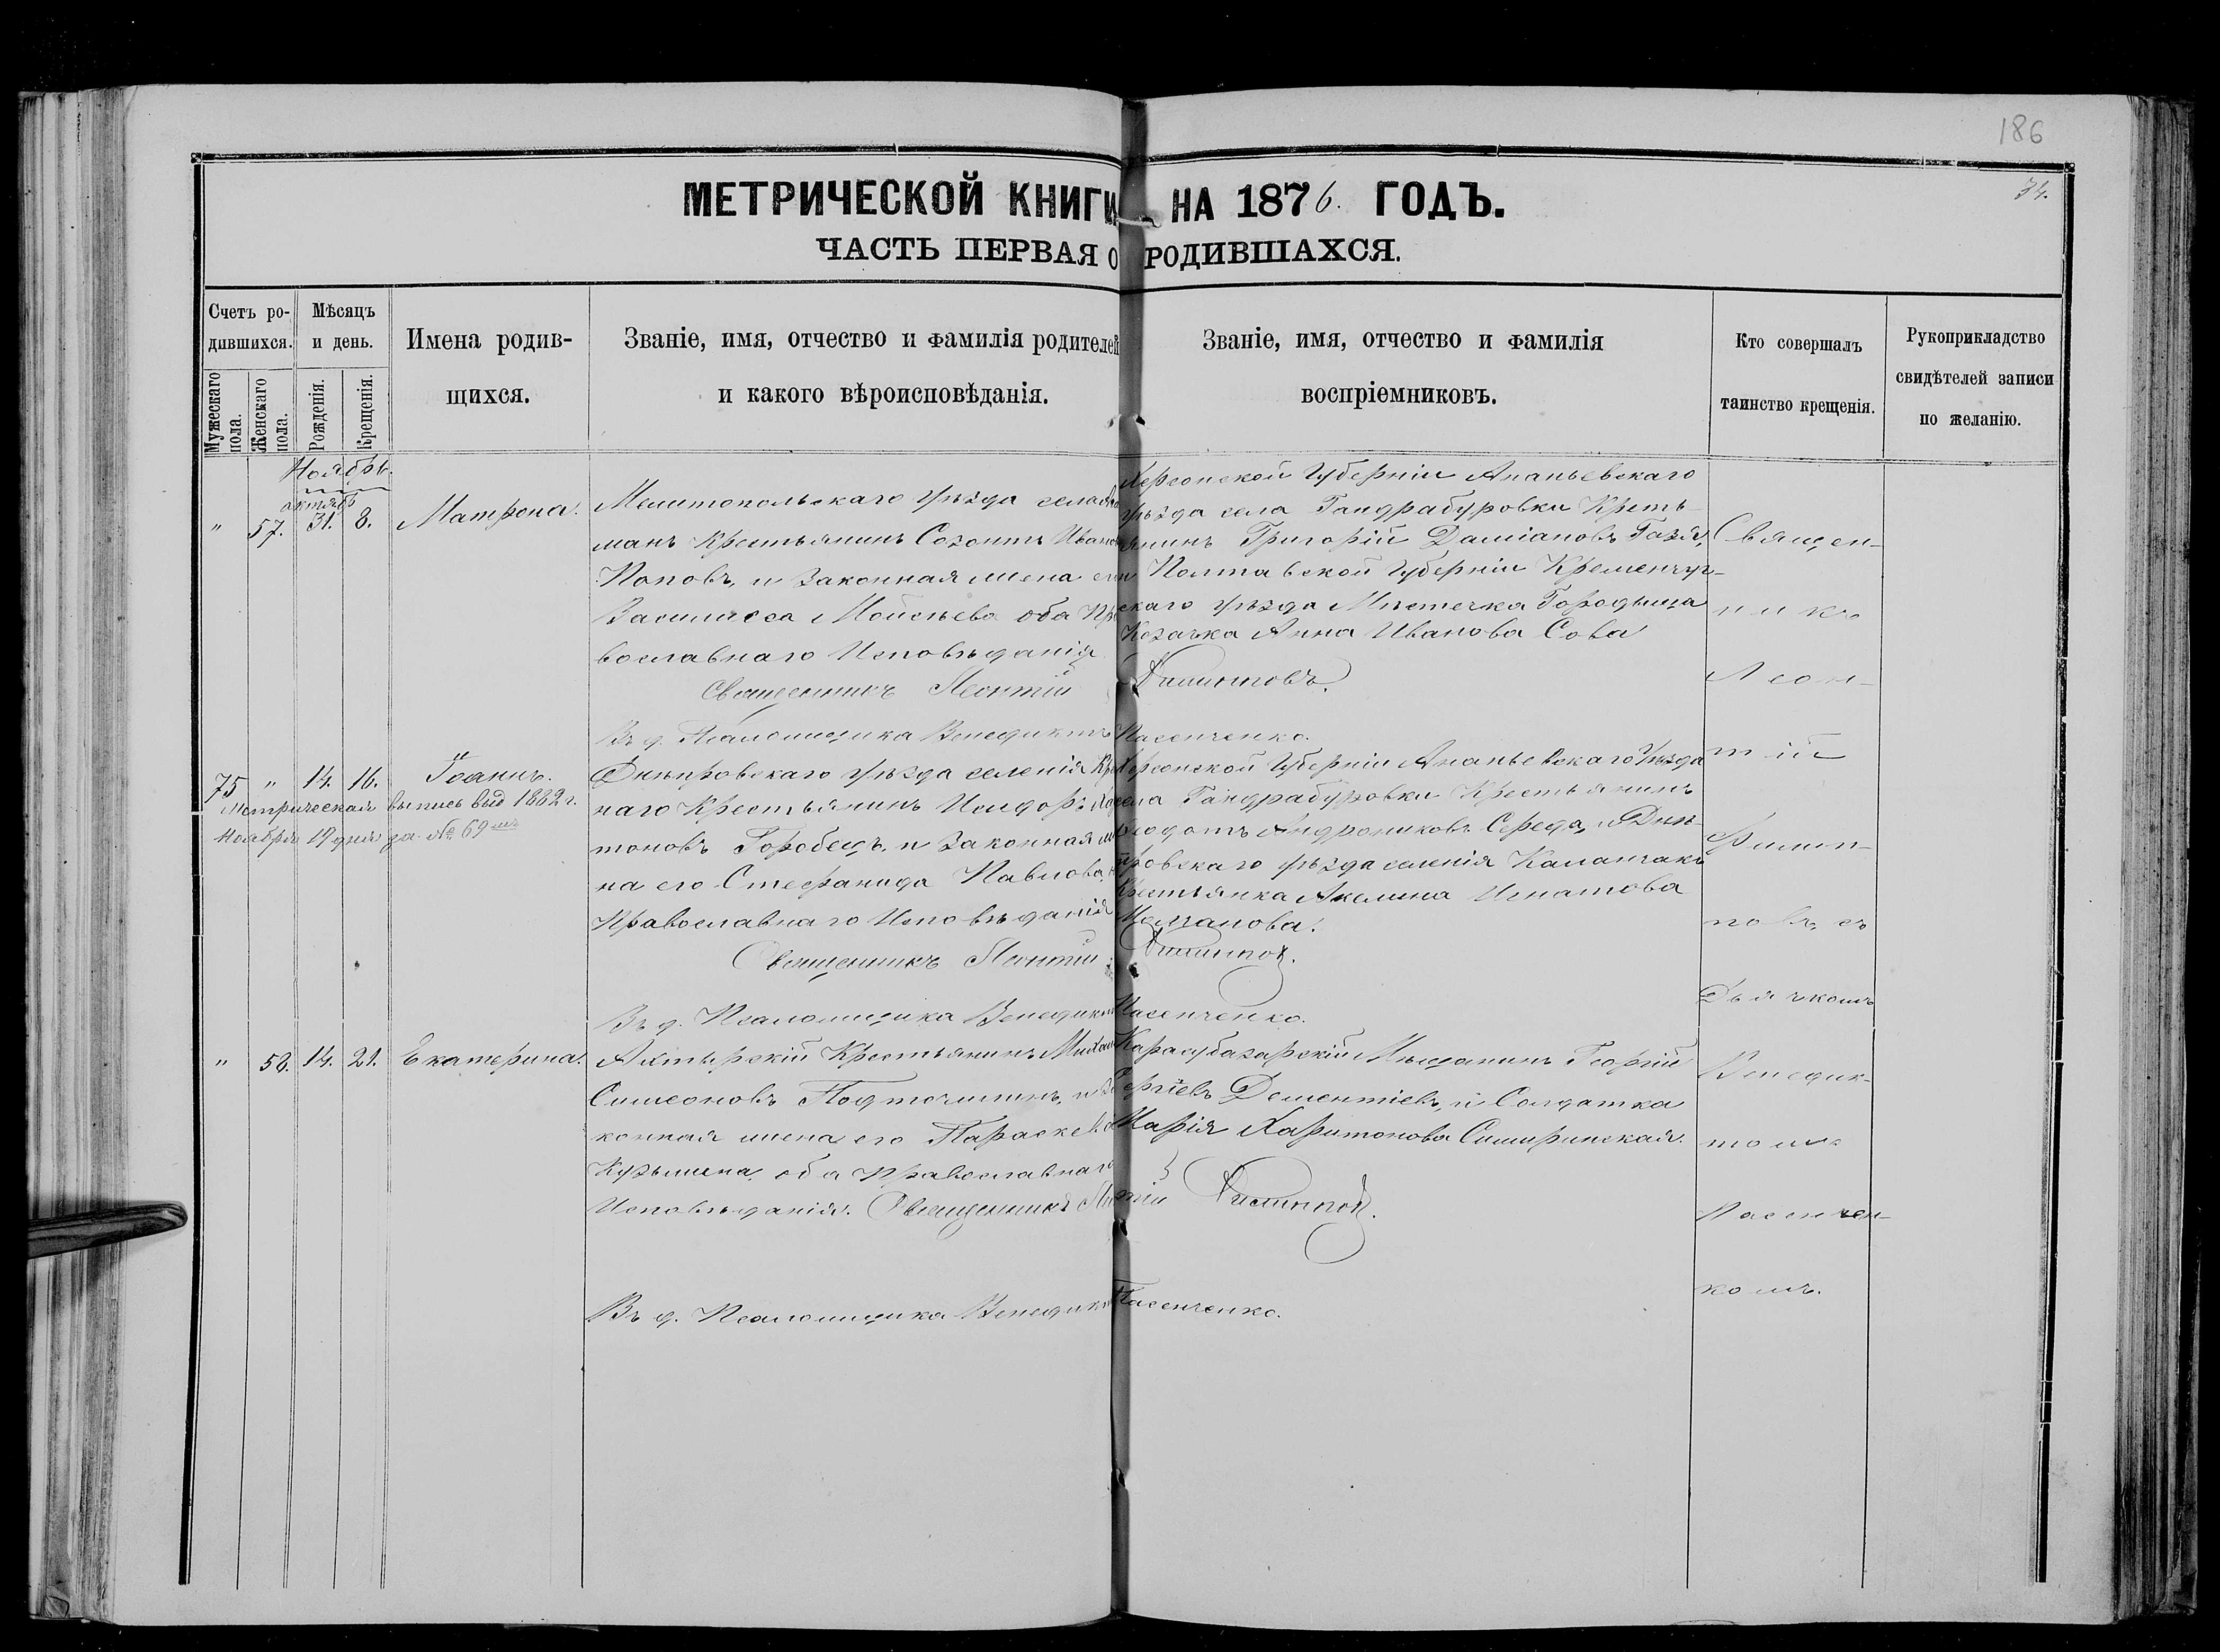 186
34.
МЕТРИЧЕСКОЙ КНИГИ НА 1876. ГОДЪ.
ЧАСТЬ ПЕРВАЯ О РОДИВШАХСЯ.
Счетъ ро-
дившихся.
Мужескаго пола.
Женскаго пола.
Мѣсяцъ
и день.
Рожденія.
Крещенія.
Имена родив-
щихся.
Званіе, имя, отчество и фамилія родителей
и какого вѣроисповѣданія.
Званіе, имя, отчество и фамилія
воспріемниковъ.
Кто совершалъ
таинство крещенія.
Рукоприкладство
свидѣтелей записи
по желанію.
Ноябрь.
октябр
" 57. 31. 8. Матрона.
Мелитопольскаго уѣзда села
манъ Крестьянинъ Созонтъ Иванов
Поповъ, и законная жена его
Василисса Мойсѣева оба Пра
вославнаго Исповѣданія
Священникъ Леонтій Филипповъ.
Въ д. Псаломщика Венедиктъ Пасенченко.
Херсонской Губерніи Ананьевскаго
уѣзда села Гандрабуровки Кресть-
янинъ Григорій Даміановъ
и Полтавской Губерніи Кременчуг-
скаго уѣзда Мѣстечка Городища
Козачка Анна Иванова Сова
75 " 14. 16. Іоаннъ.
Метрическая выпись выд 1882 г.
Ноября 19 дня за № 69
Днѣпровскаго уѣзда селенія
наго Крестьянинъ Исидоръ
тоновъ Горобецъ, и законная же
на его Стефанида Павлова,
Православнаго Исповѣданія
Священникъ Леонтій Филиппов.
Въ д. Псаломщика Венедикт Пасенченко.
Херсонской Губерніи Ананьевскаго Уѣзда
села Гандрабуровки Крестьянинъ
Ѳеодотъ Андрониковъ Середа, и Днѣ-
провскаго уѣзда селенія Каланчака
Крестьянка Акелина Игнатова
" 58. 14. 21. Екатерина.
Ахтырскій Крестьянинъ Михаи
Симеоновъ и за
конная жена его Параскева
Кузьмина, оба Православнаго
Исповѣданія. Священникъ Леонтій Филиппов.
Въ д. Псаломщика Венедикт Пасенченко.
Карасубазарскій Мѣщанинъ Георгій
Сергіевъ Дементіевъ, и Солдатка
Марія Харитонова
Священ-
никъ
Леон-
тій
Филип-
повъ, съ
Дьячкомъ
Венедик-
томъ
Пасенчен-
комъ.